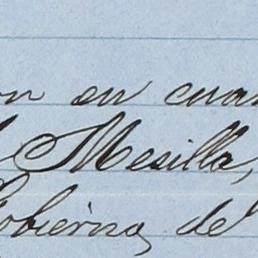 on en cuan
Mesilla,
Gobierno, de